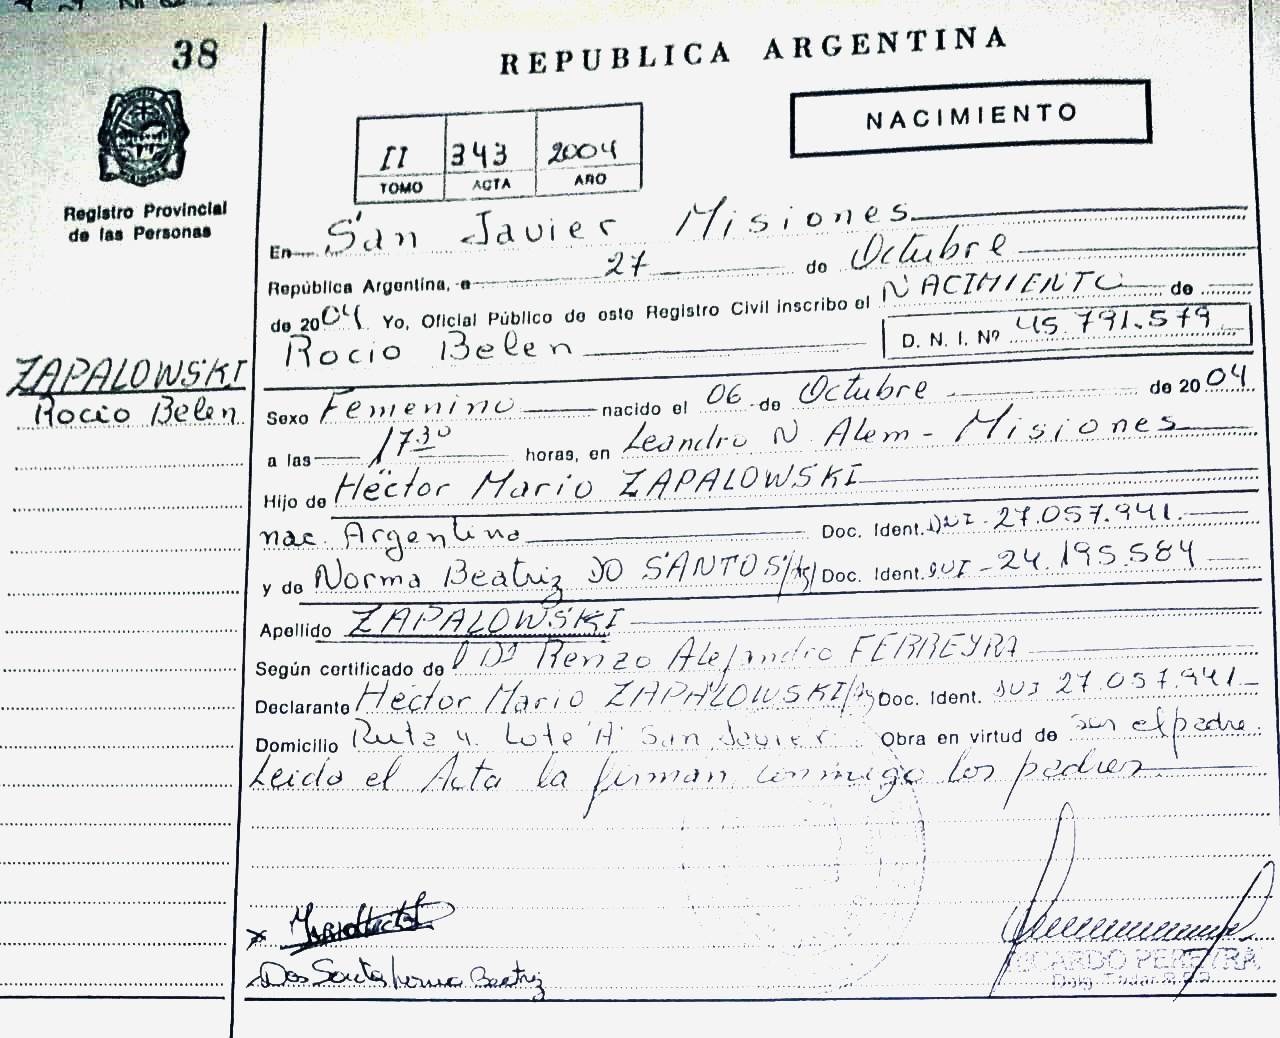 38
REPUBLICA ARGENTINA
NACIMIENTO
II 343 2004
TOMO ACTA AÑO
Registro Provincial
de las Personas
En San Javier Misiones
República Argentina, a 27 de Octubre
de 2004 Yo, Oficial Público de este Registro Civil inscribo el NACIMIENTO de
Rocio Belen D. N. I. Nº 45.791.579
ZAPALOWSKI
Rocio Belen
Sexo Femenino nacido el 06 de Octubre de 2004
a las 17.30 horas, en Leandro N Alem - Misiones
Hijo de Héctor Mario ZAPALOWSKI
nac. Argentina Doc. Ident. DNI - 27.057.941.
y de Norma Beatriz DO SANTOS Doc. Ident. DNI - 24.195.584
Apellido ZAPALOWSKI
Según certificado de Renzo Alejandro FERREYRA
Declarante Héctor Mario ZAPALOWSKI Doc. Ident. DNI 27.057.941
Domicilio Ruta 4 Lote "A" San Javier Obra en virtud de ser el padre
Leido el Acta la firman conmigo los padres
Dos Santos Norma Beatriz
PEREYRA